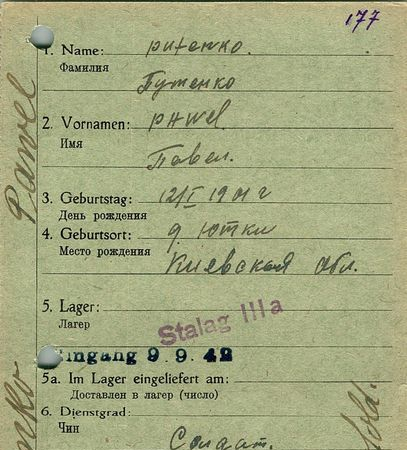 177
1. Name: putenko.
Фамилия
Путенко
2. Vornamen: pawel
Имя
Павел.
3. Geburtstag: 12/I 1901 г
День рождения
4. Geburtsort: д. Ютки
Место рождения
Киевская обл.
5. Lager:
Лагер
Stalag IIIa
Eingang 9.9.42
5a. Im Lager eingeliefert am:
Доставлен в лагер (число)
6. Dienstgrad:
Чин
Солдат.
Pawel